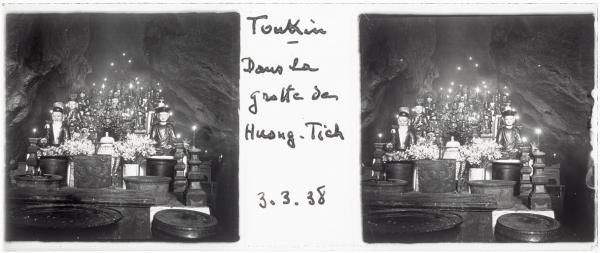 Tonkin
Dans la
grotte de
Huong-Tich
3.3.38